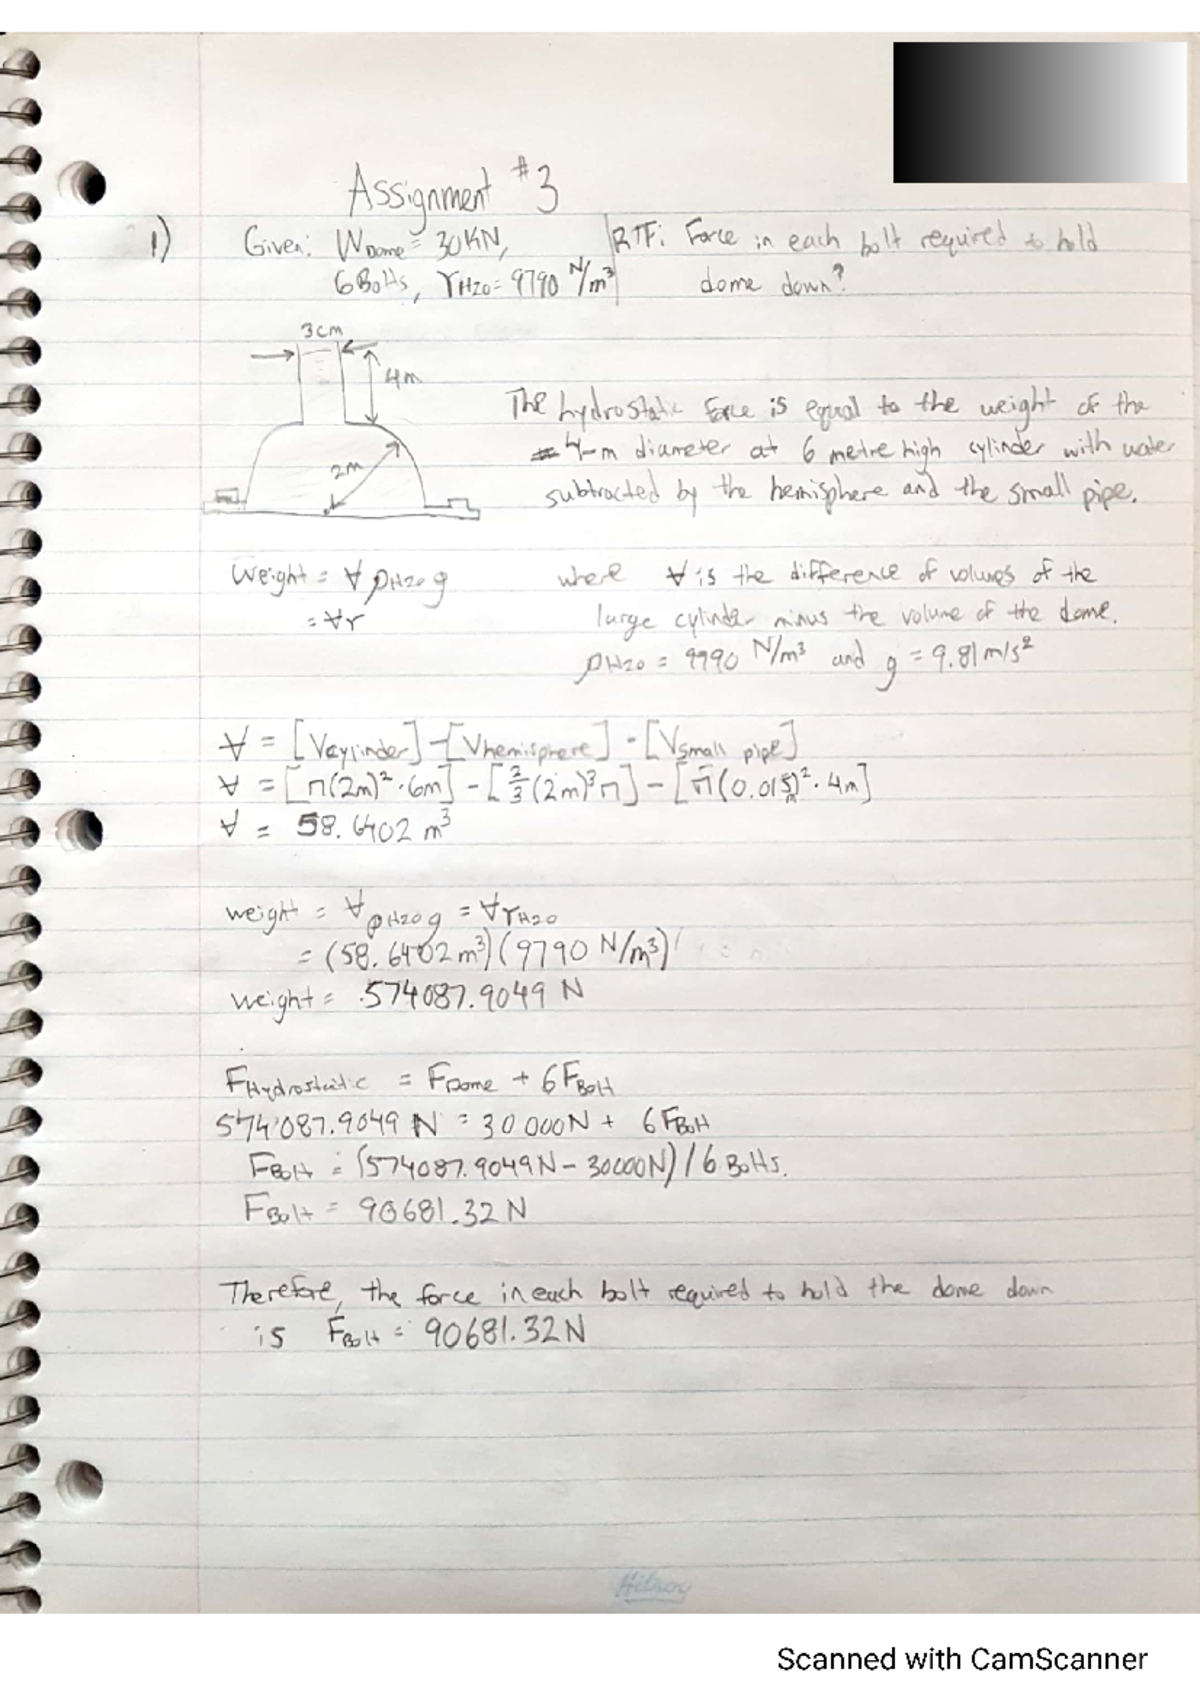 Assignment #3
1) Given: WDome = 30KN, RTF: Force in each bolt required to hold
6 Bolts, γH2O = 9790 N/m³ dome down?
3cm
4m
2m
The hydrostatic force is equal to the weight of the
4-m diameter at 6 metre high cylinder with water
subtracted by the hemisphere and the small pipe.
Weight = ∀ρH2O g where ∀ is the difference of volumes of the
= ∀γ large cylinder minus the volume of the dome.
ρH2O = 9790 N/m³ and g = 9.81 m/s²
∀ = [Vcylinder] - [Vhemisphere] - [Vsmall pipe]
∀ = [π(2m)²·6m] - [2/3(2m)³π] - [π(0.015m)²·4m]
∀ = 58.6402 m³
weight = ∀ρH2O g = ∀γH2O
= (58.6402 m³)(9790 N/m³)
weight = 574087.9049 N
FHydrostatic = FDome + 6FBolt
574087.9049 N = 30 000N + 6FBolt
FBolt = (574087.9049N - 30000N)/6 Bolts.
FBolt = 90681.32 N
Therefore, the force in each bolt required to hold the dome down
is FBolt = 90681.32N
Hilroy
Scanned with CamScanner